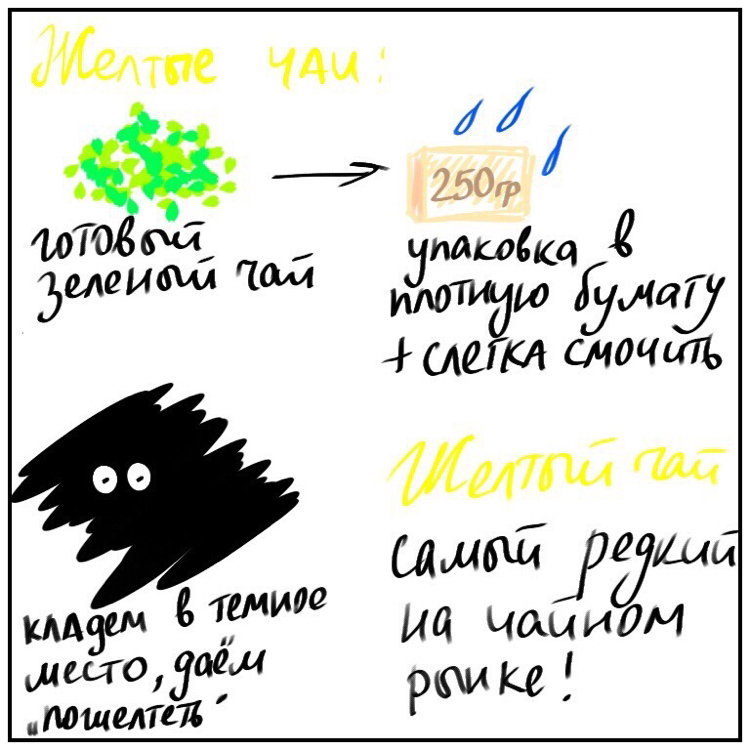 Желтые чаи:
готовый
зеленый чай
250гр
упаковка в
плотную бумагу
+ слегка смочить
кладем в темное
место, даём
„пожелтеть"
Желтый чай
самый редкий
на чайном
рынке!